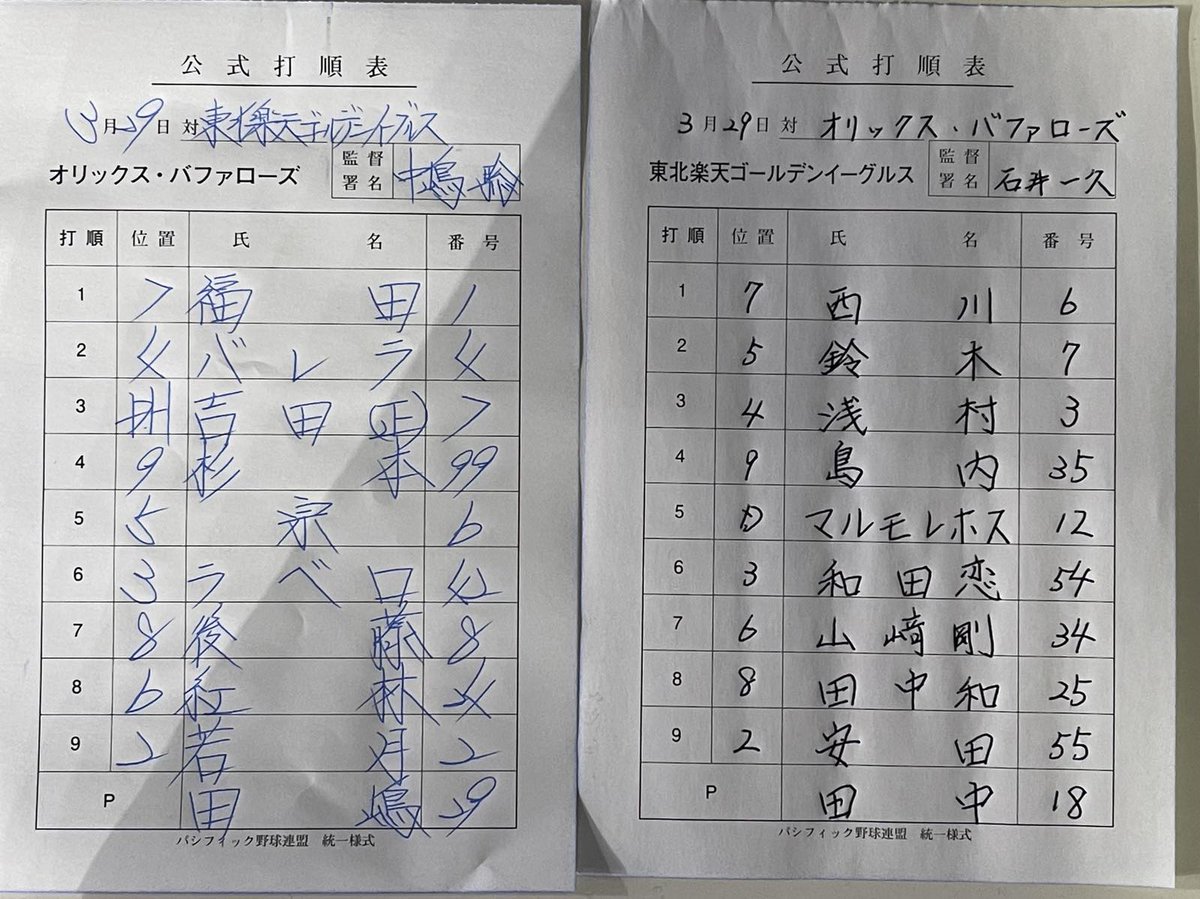 公式打順表
3月29日 対 東北楽天ゴールデンイーグルス
オリックス・バファローズ 監督署名 中嶋 聡
打順 位置 氏名 番号
1 7 福田 1
2 4 バレラ 4
3 DH 吉田(正) 7
4 9 杉本 99
5 5 宗 6
6 3 ラベロ 42
7 8 後藤 8
8 6 紅林 24
9 2 若月 2
P 田嶋 29
パシフィック野球連盟 統一様式
公式打順表
3月29日 対 オリックス・バファローズ
東北楽天ゴールデンイーグルス 監督署名 石井一久
打順 位置 氏名 番号
1 7 西川 6
2 5 鈴木 7
3 4 浅村 3
4 9 島内 35
5 D マルモレホス 12
6 3 和田恋 54
7 6 山﨑剛 34
8 8 田中和 25
9 2 安田 55
P 田中 18
パシフィック野球連盟 統一様式